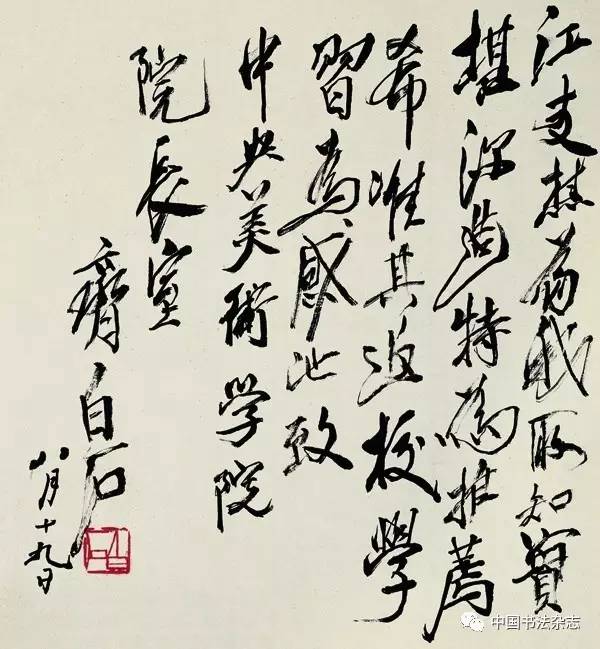 江支樵為我所知實
堪深造特為推薦
希准其返校學
習為感此致
中央美術学院
院長室
齊白石
八月十九日
中国书法杂志